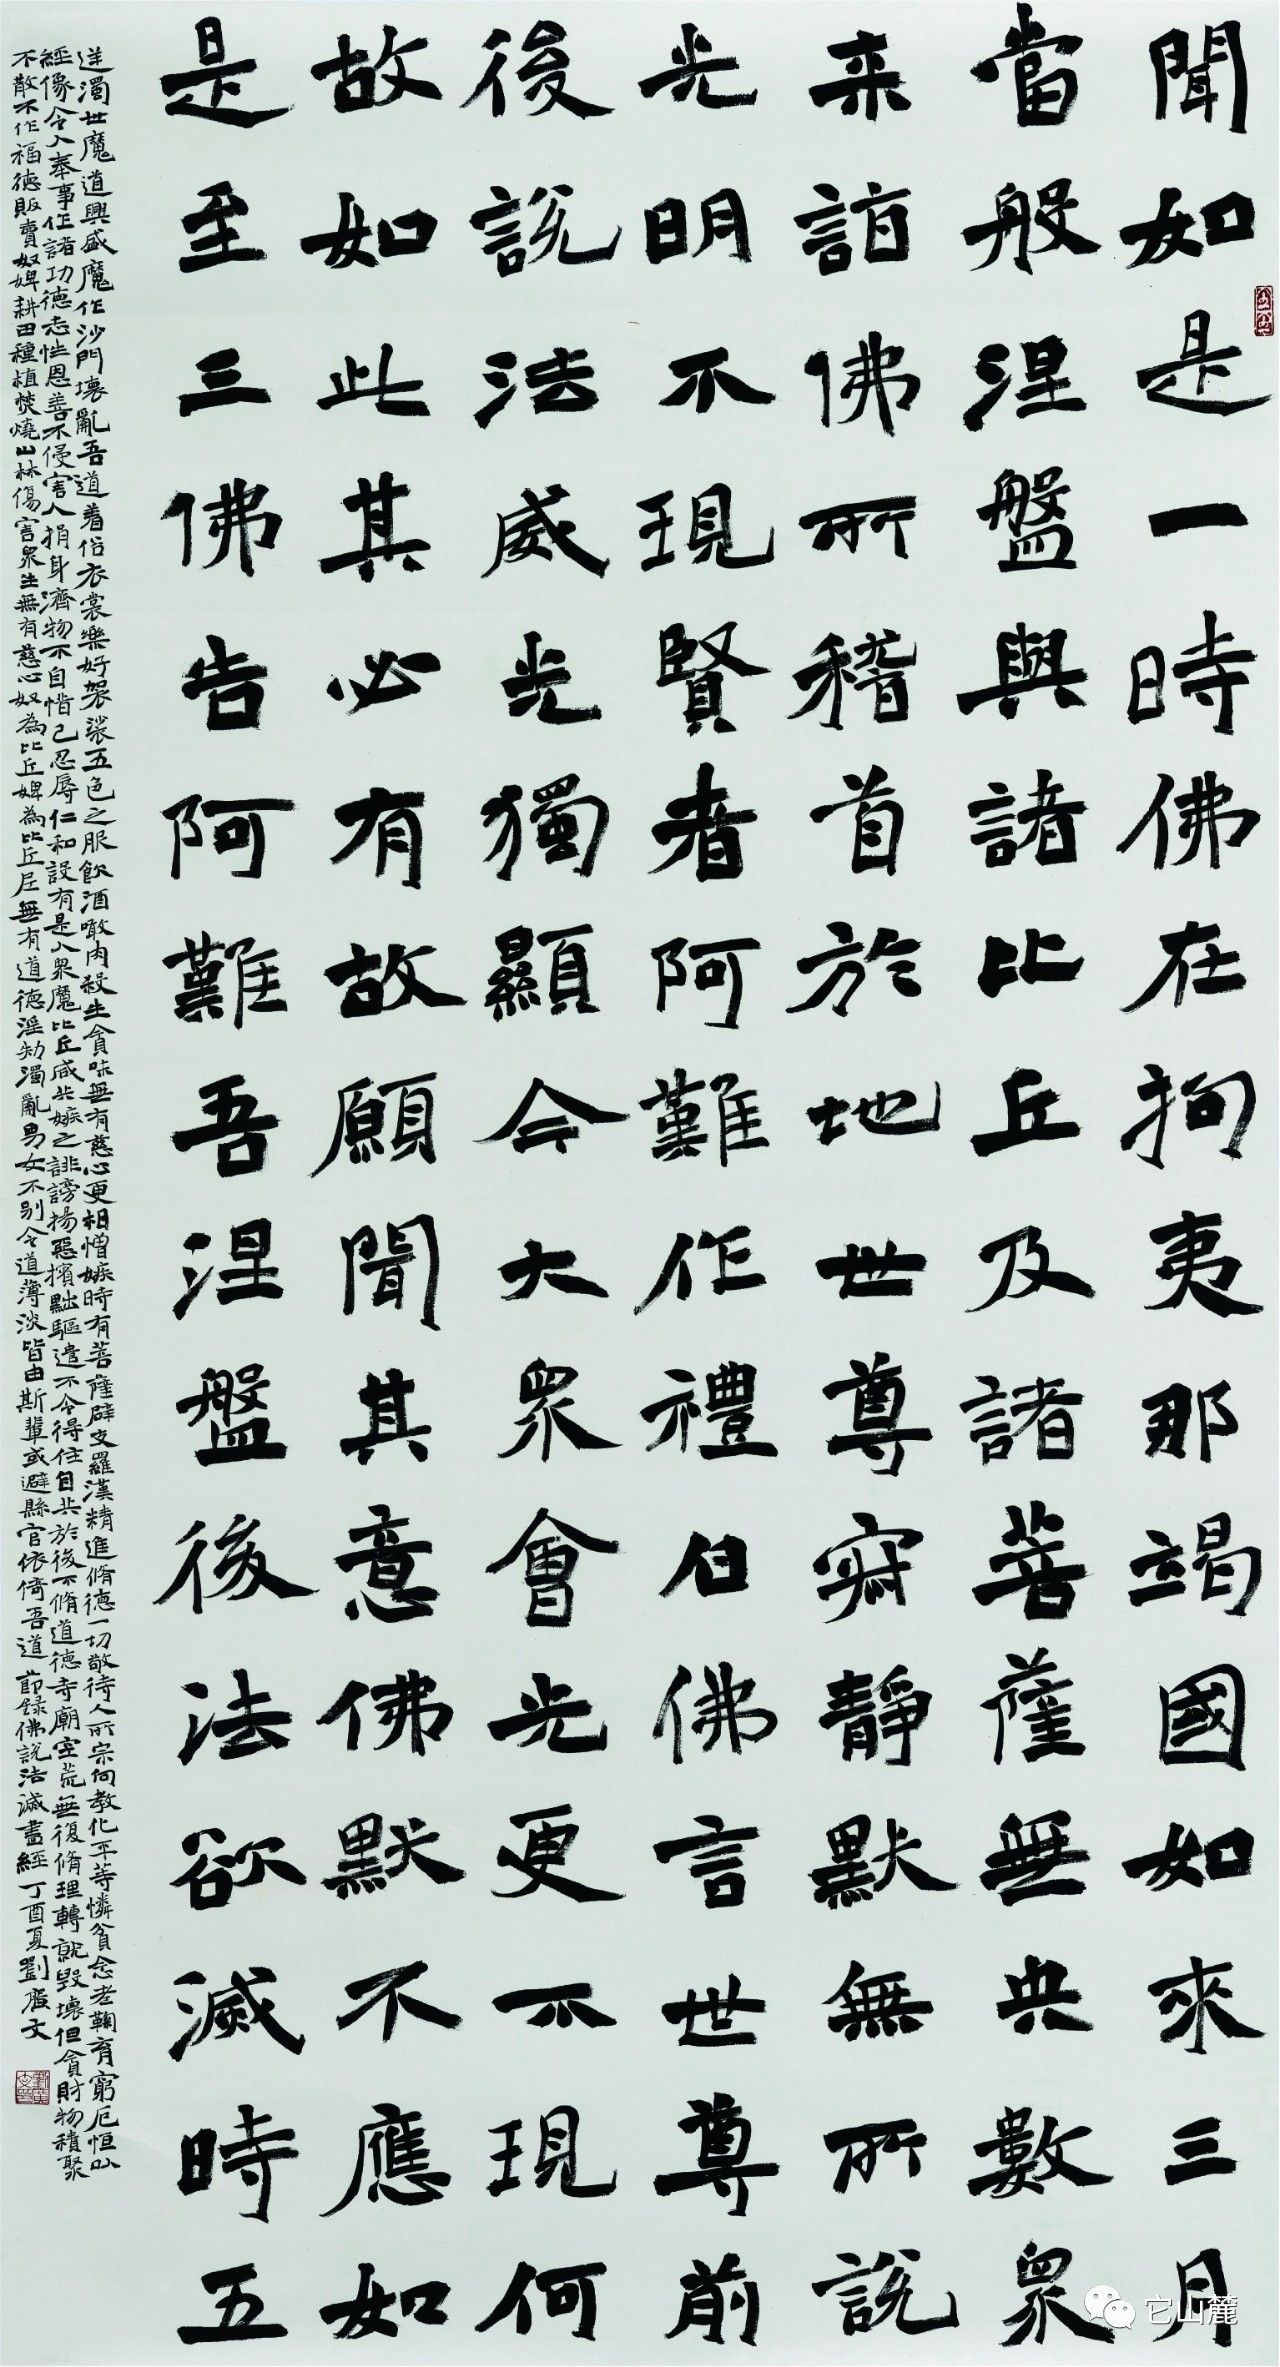 聞如是一時佛在拘夷那竭國如來三月
當般涅盤與諸比丘及諸菩薩無央數眾
来詣佛所稽首於地世尊寂靜默無所說
光明不現賢者阿難作禮白佛言世尊前
後說法威光獨顯今大眾會光更不現何
故如此其必有故願聞其意佛默不應如
是至三佛告阿難吾涅盤後法欲滅時五
逆濁世魔道興盛魔作沙門壞亂吾道着俗衣裳樂好袈裟五色之服飲酒噉肉殺生貪味無有慈心更相憎嫉時有菩薩辟支羅漢精進脩德一切敬待人所宗向教化平等憐貧念老鞠育窮厄恒以
經像令人奉事作諸功德志性恩善不侵害人捐身濟物不自惜己忍辱仁和設有是人眾魔比丘咸共嫉之誹謗揚惡擯黜驅遣不令得住自共於後不脩道德寺廟空荒無復脩理轉就毀壞但貪財物積聚
不散不作福德販賣奴婢耕田種植焚燒山林傷害眾生無有慈心奴為比丘婢為比丘尼無有道德淫劮濁亂男女不別令道薄淡皆由斯輩或避縣官依倚吾道 節録佛說法滅盡經丁酉夏劉殷文
它山麓